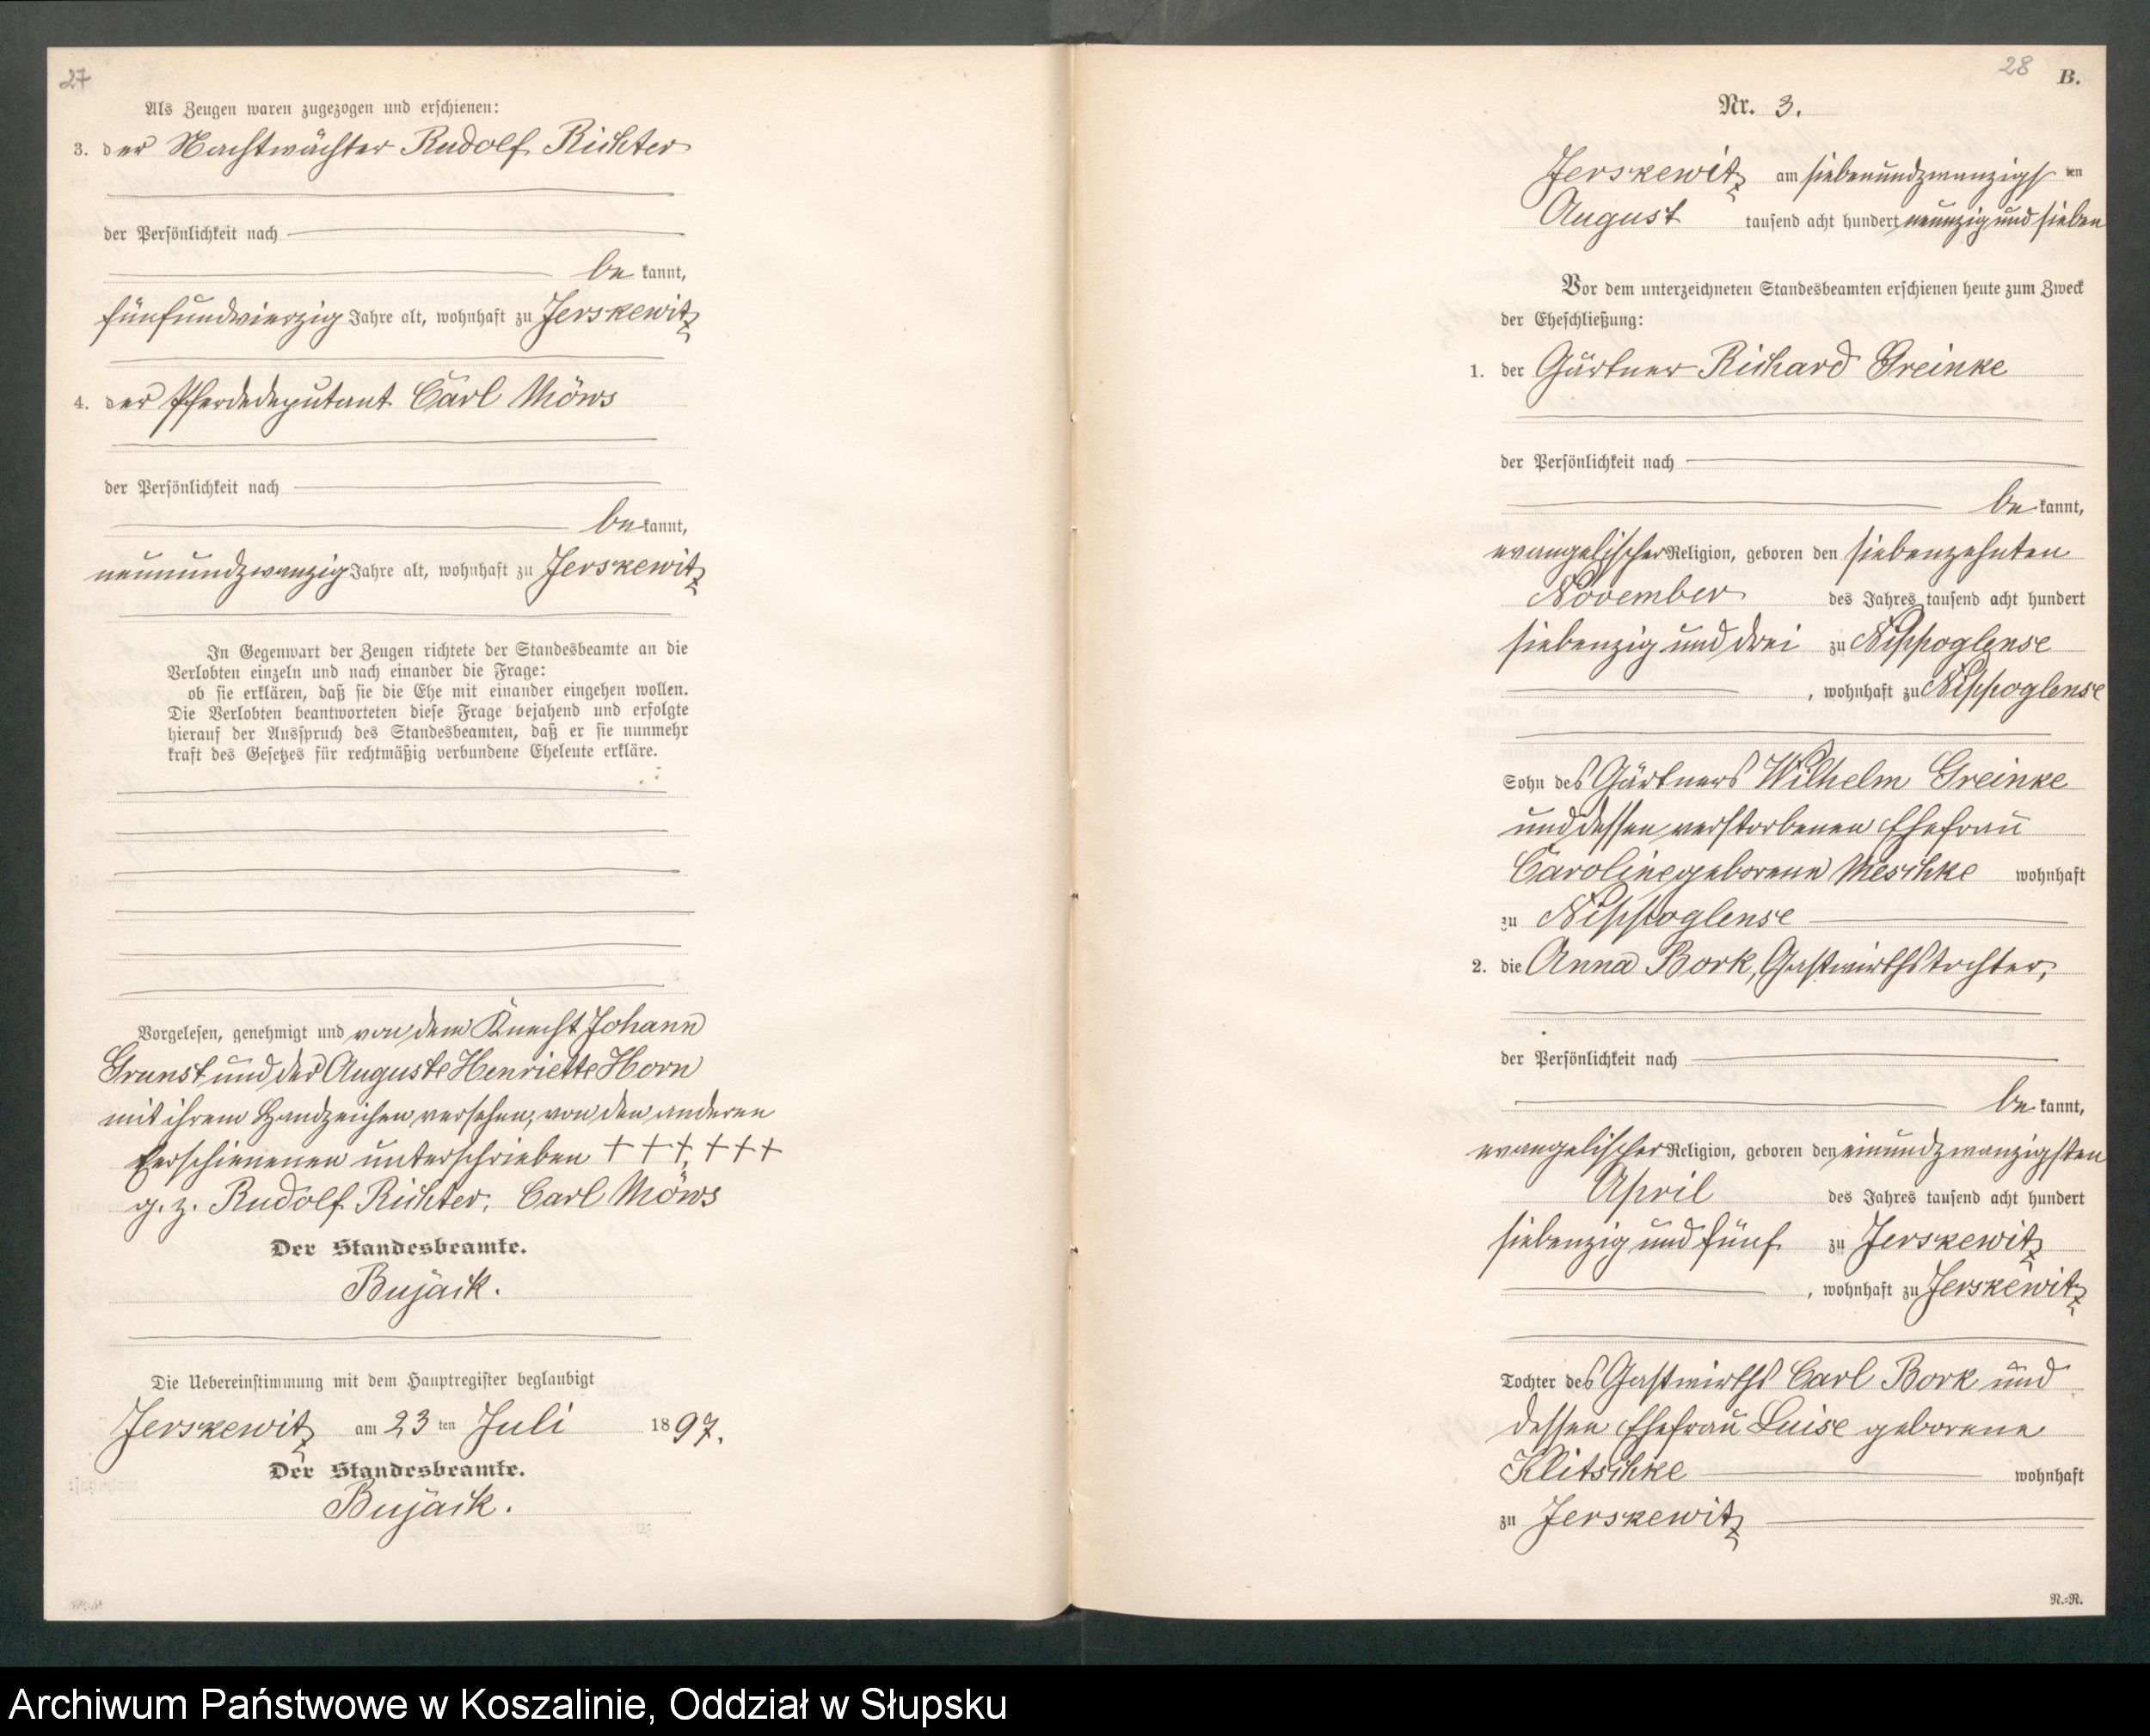 27
Als Zeugen waren zugezogen und erschienen:
3. der Nachtwächter Rudolf Richter
der Persönlichkeit nach
be kannt,
fünfundvierzig Jahre alt, wohnhaft zu Jerskewitz
4. der Pferdedeputant Carl Möws
der Persönlichkeit nach
be kannt,
neunundzwanzig Jahre alt, wohnhaft zu Jerskewitz
In Gegenwart der Zeugen richtete der Standesbeamte an die
Verlobten einzeln und nach einander die Frage:
ob sie erklären, daß sie die Ehe mit einander eingehen wollen.
Die Verlobten beantworteten diese Frage bejahend und erfolgte
hierauf der Ausspruch des Standesbeamten, daß er sie nunmehr
kraft des Gesetzes für rechtmäßig verbundene Eheleute erkläre.
Vorgelesen, genehmigt und von dem Knecht Johann
Grunst und der Auguste Henriette Horn
mit ihrem Handzeichen versehen, von den anderen
Erschienenen unterschrieben +++, +++
g. z. Rudolf Richter. Carl Möws
Der Standesbeamte.
Bujack.
Die Uebereinstimmung mit dem Hauptregister beglaubigt
Jerskewitz am 23 ten Juli 1897.
Der Standesbeamte.
Bujack.
28
B.
Nr. 3.
Jerskewitz am siebenundzwanzigs ten
August tausend acht hundert neunzig und sieben
Vor dem unterzeichneten Standesbeamten erschienen heute zum Zweck
der Eheschließung:
1. der Gärtner Richard Greinke
der Persönlichkeit nach
be kannt,
evangelischer Religion, geboren den siebenzehnten
November des Jahres tausend acht hundert
siebenzig und drei zu Nippoglense
, wohnhaft zu Nippoglense
Sohn des Gärtners Wilhelm Greinke
und dessen verstorbenen Ehefrau
Caroline geborene Meschke wohnhaft
zu Nippoglense
2. die Anna Bork, Gastwirthstochter,
der Persönlichkeit nach
be kannt,
evangelischer Religion, geboren den einundzwanzigsten
April des Jahres tausend acht hundert
siebenzig und fünf zu Jerskewitz
, wohnhaft zu Jerskewitz
Tochter des Gastwirths Carl Bork und
dessen Ehefrau Luise geborene
Klitschke wohnhaft
zu Jerskewitz
N.-N.
Archiwum Państwowe w Koszalinie, Oddział w Słupsku